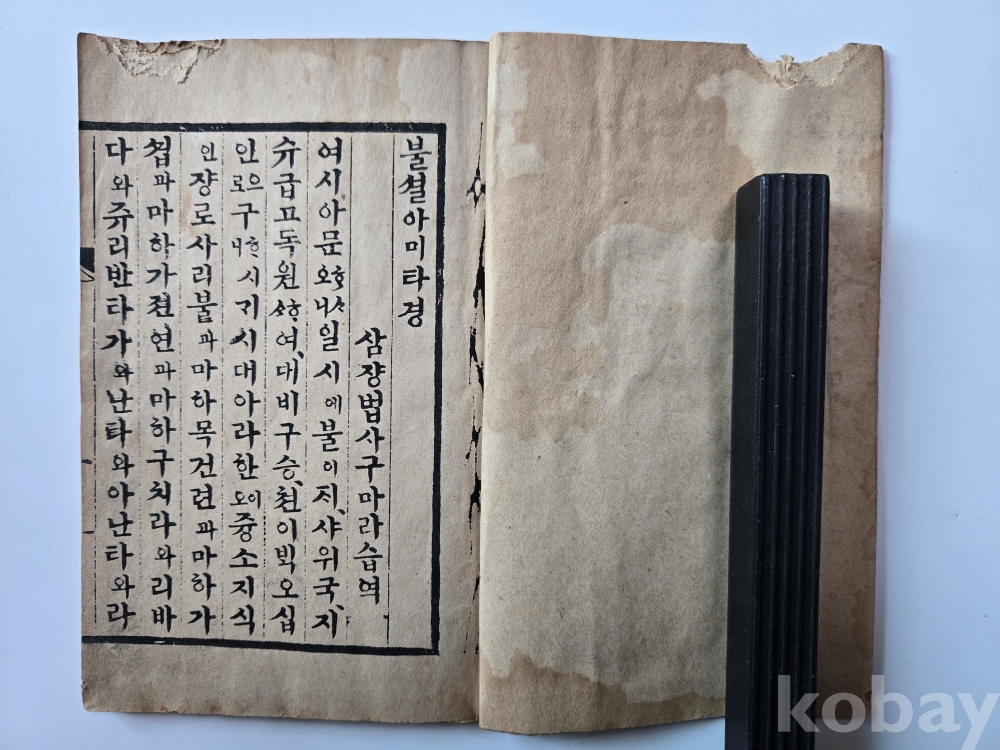 불셜아미타경
삼쟝법사구마라습역
여시아문ᄒᆞᄉᆞ오니일시에불이ᄌᆡ、샤위국、지
슈급고독원ᄒᆞᄉᆞ여、대비구승、쳔이ᄇᆡᆨ오십
인으로구ᄒᆞ시니ᄀᆡ시대아라한이오즁소지식
인쟝로사리불과마하목건련과마하가
셥과마하가젼연과마하구치라와리바
다와쥬리반타가와난타와아난타와라
kobay